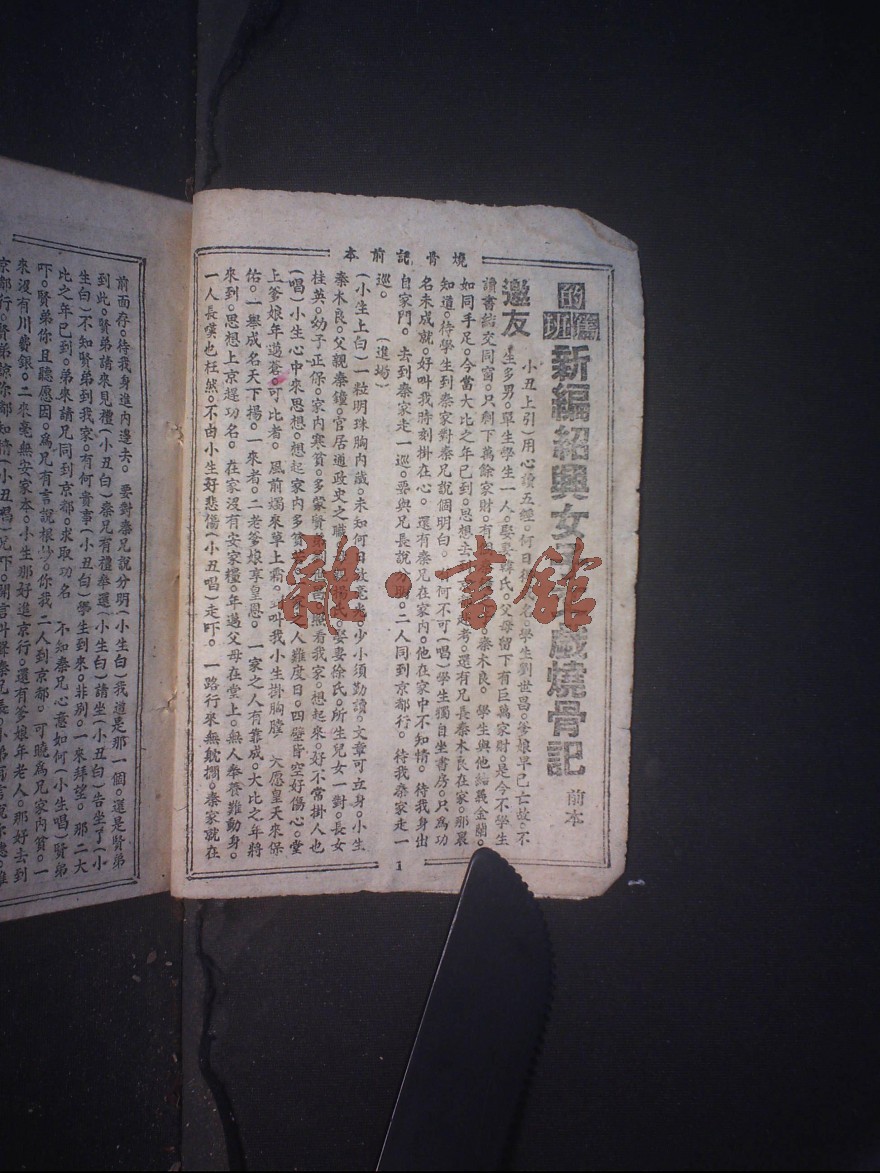 燒骨記前本
的篤班
新編紹興女子文戲燒骨記 前本
邀友
(小丑上引)用心讀五經。何日得 名。學生劉世昌。爹娘早已亡故。不
生多男。單生學生一人。娶妻韓氏。父母留下有巨萬家財。是今不學生
讀書結交同窗。只剩下萬餘家財。有 秦木良。學生與他結義金蘭。
如同手足。今當大比之年已到。思想去 考。還有兄長秦木良在家。那裏
知道。待學生到秦家對秦兄說個明白。 何不可(唱)學生獨自坐書房。只爲功
名未成就。好叫我時刻掛在心。還有秦兄在家內。他在家中不知情。待我身出
自家門。去到秦家走一巡。要與兄長說分明。二人同到京都行。待我秦家走一
巡。 (進場)
(小生上白)一粒明珠胸內藏。未知何日放毫光。少小須勤讀。文章可立身。小生
秦木良。父親秦鐘。官居道政史之職。 楊氏。娶妻徐氏。所生兒女一對。長女
桂英。幼子正保。家內寒貧。多蒙賢弟劉世昌照看我家。想起來。好不常掛人也
(唱)小生心中來思想。想起家內多貧 之人難度日。四壁皆空好傷心。堂
上爹娘年邁蒼。可比者。風前燭來草上霜。 叫我小生掛胸膛 大愿皇天來保
佑。一舉成名天下揚。一來者。二老爹娘享皇恩。一家之人有靠成。大比之年將
來到。思想上京趕功名。在家沒有安家糧。年邁父母在堂上。無人奉養難動身。
一人長嘆也枉然。不由小生好悲傷(小丑唱)走吓。一路行來無躭擱。秦家就在
1
雜·書館
前面存。待我身進內邊去。要對秦兄說分明(小生白)我道是那一個。還是賢弟
到此。賢弟請來見禮(小丑白)秦兄有禮奉還(小生白)請坐(小丑白)告坐了(小
生白)不知賢弟到我家。有何貴事(小丑白)學生到來。非別。一來拜望。那二大
比之年已到。弟來請兄同到京都。求取功名 不知秦兄心意如何(小生唱)賢弟
吓。賢弟你且聽愿因。爲兄有言說根 。你我二人到京都。可曉爲兄家內貧。一
來沒有川費銀。二來毫無安家本。小生那好進京行。還有爹娘年老人。那好去到
京都行。賢弟諒你都知情(小丑唱)兄吓。開言叫聲秦兄長。